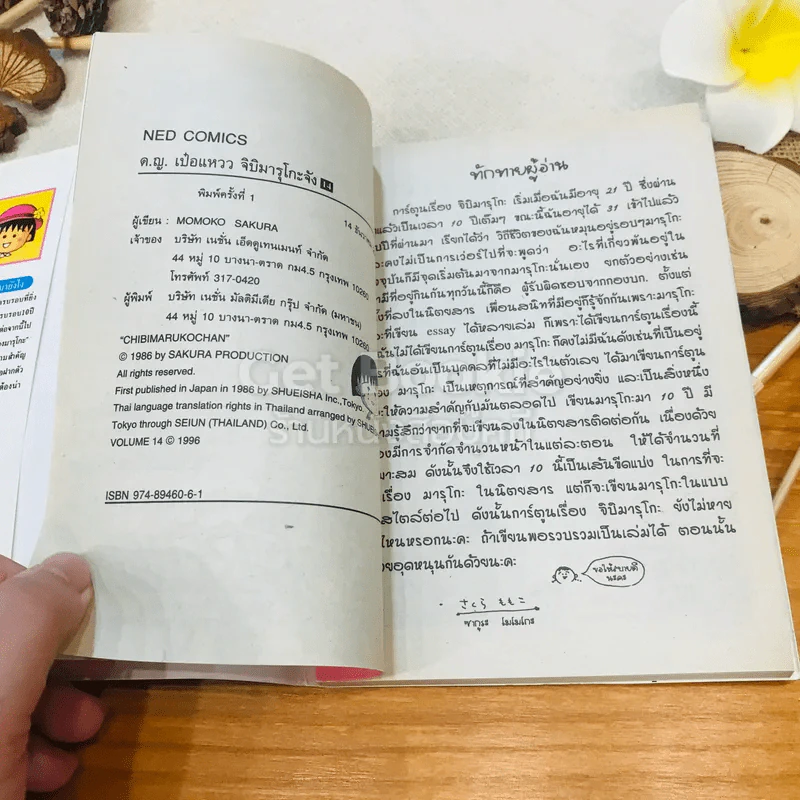 NED COMICS
ด.ญ. เป๋อแหวว จิบิมารุโกะจัง 14
พิมพ์ครั้งที่ 1
14 ธันวาคม
ผู้เขียน : MOMOKO SAKURA
เจ้าของ บริษัท เนชั่น เอ็ดดูเทนเมนท์ จำกัด
44 หมู่ 10 บางนา-ตราด กม4.5 กรุงเทพ 10260
โทรศัพท์ 317-0420
ผู้พิมพ์ บริษัท เนชั่น มัลติมีเดีย กรุ๊ป จำกัด (มหาชน)
44 หมู่ 10 บางนา-ตราด กม.4.5 กรุงเทพ 10260
"CHIBIMARUKOCHAN"
© 1986 by SAKURA PRODUCTION
All rights reserved.
First published in Japan in 1986 by SHUEISHA Inc., Tokyo.
Thai language translation rights in Thailand arranged by SHUEI
Tokyo through SEIUN (THAILAND) Co., Ltd.
VOLUME 14 © 1996
ISBN 974-89460-6-1
ทักทายผู้อ่าน
การ์ตูนเรื่อง จิบิมารุโกะ เริ่มเมื่อฉันมีอายุ 21 ปี ซึ่งผ่าน
แล้วเป็นเวลา 10 ปีเต็มๆ ขณะนี้ฉันอายุได้ 31 เข้าไปแล้ว
ปีที่ผ่านมา เรียกได้ว่า วิถีชีวิตของฉันหมุนอยู่รอบๆมารุโกะ
คงไม่เป็นการเว่อร์ไปที่จะพูดว่า อะไรที่เกี่ยวพันอยู่ใน
จุบันก็มีจุดเริ่มต้นมาจากมารุโกะนั่นเอง ยกตัวอย่างเช่น
มีที่อยู่กินกันทุกวันนี้ก็คือ ผู้รับผิดชอบจากกองบก. ตั้งแต่
ที่ลงในนิตยสาร เพื่อนสนิทที่มีอยู่ก็รู้จักกันเพราะมารุโกะ
ที่เขียน essay ได้หลายเล่ม ก็เพราะได้เขียนการ์ตูนเรื่องนี้
นไม่ได้เขียนการ์ตูนเรื่อง มารุโกะ ก็คงไม่มีฉันดังเช่นที่เป็นอยู่
ที่ฉันอันเป็นบุคคลที่ไม่มีอะไรในตัวเลย ได้มาเขียนการ์ตูน
มารุโกะ เป็นเหตุการณ์ที่สำคัญอย่างยิ่ง และเป็นสิ่งหนึ่ง
ให้ความสำคัญกับมันตลอดไป เขียนมารุโกะมา 10 ปี มี
ามรู้สึกว่ายากที่จะเขียนลงในนิตยสารติดต่อกัน เนื่องด้วย
องมีการจำกัดจำนวนหน้าในแต่ละตอน ให้ได้จำนวนที่
มาะสม ดังนั้นจึงใช้เวลา 10 นี้เป็นเส้นขีดแบ่ง ในการที่จะ
เรื่อง มารุโกะ ในนิตยสาร แต่ก็จะเขียนมารุโกะในแบบ
สไตล์ต่อไป ดังนั้นการ์ตูนเรื่อง จิบิมารุโกะ ยังไม่หาย
ไหนหรอกนะคะ ถ้าเขียนพอรวบรวมเป็นเล่มได้ ตอนนั้น
ยอุดหนุนกันด้วยนะคะ
ขอให้สบายดี
นะคะ
さくら ももこ
ซากุระ โมโมโกะ